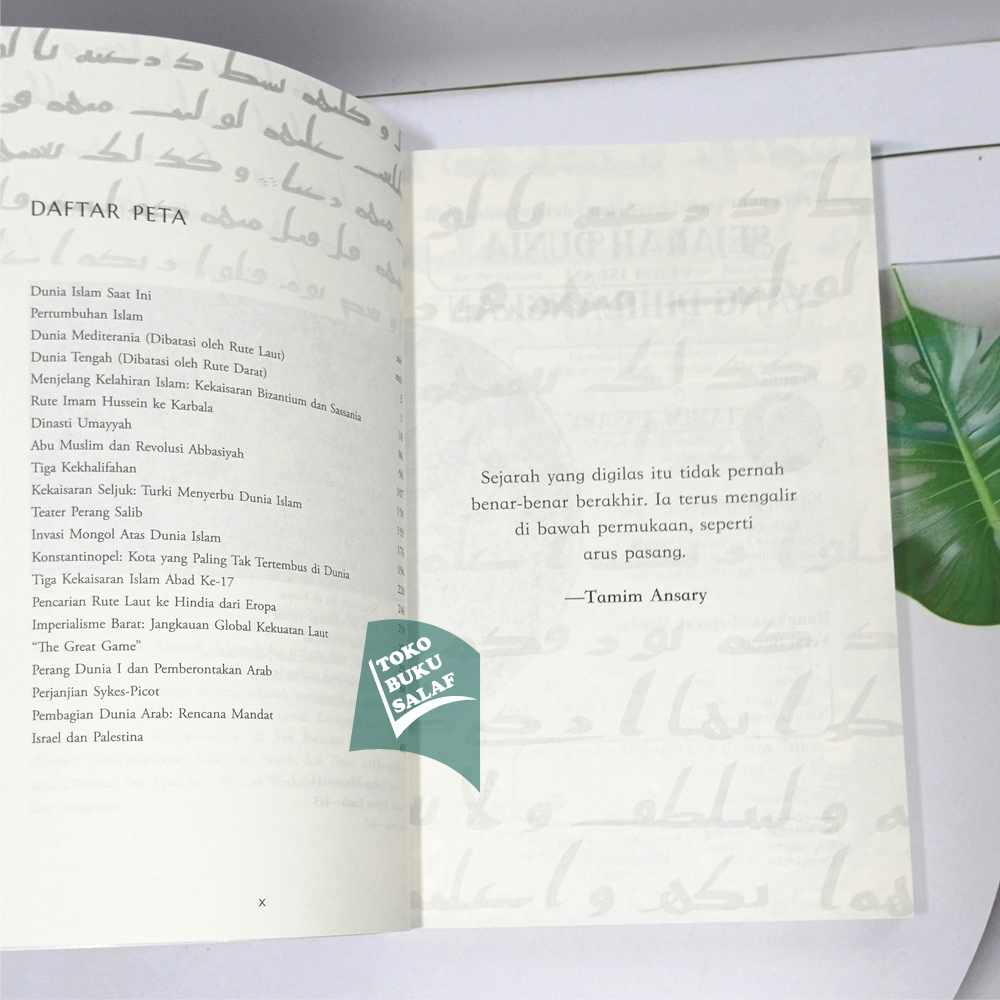 DAFTAR PETA
Dunia Islam Saat Ini
Pertumbuhan Islam
Dunia Mediterania (Dibatasi oleh Rute Laut)
Dunia Tengah (Dibatasi oleh Rute Darat)
Menjelang Kelahiran Islam: Kekaisaran Bizantium dan Sassania
Rute Imam Hussein ke Karbala
Dinasti Umayyah
Abu Muslim dan Revolusi Abbasiyah
Tiga Kekhalifahan
Kekaisaran Seljuk: Turki Menyerbu Dunia Islam
Teater Perang Salib
Invasi Mongol Atas Dunia Islam
Konstantinopel: Kota yang Paling Tak Tertembus di Dunia
Tiga Kekaisaran Islam Abad Ke-17
Pencarian Rute Laut ke Hindia dari Eropa
Imperialisme Barat: Jangkauan Global Kekuatan Laut
“The Great Game”
Perang Dunia I dan Pemberontakan Arab
Perjanjian Sykes-Picot
Pembagian Dunia Arab: Rencana Mandat
Israel dan Palestina
x
Sejarah yang digilas itu tidak pernah
benar-benar berakhir. Ia terus mengalir
di bawah permukaan, seperti
arus pasang.
—Tamim Ansary
TOKO
BUKU
SALAF